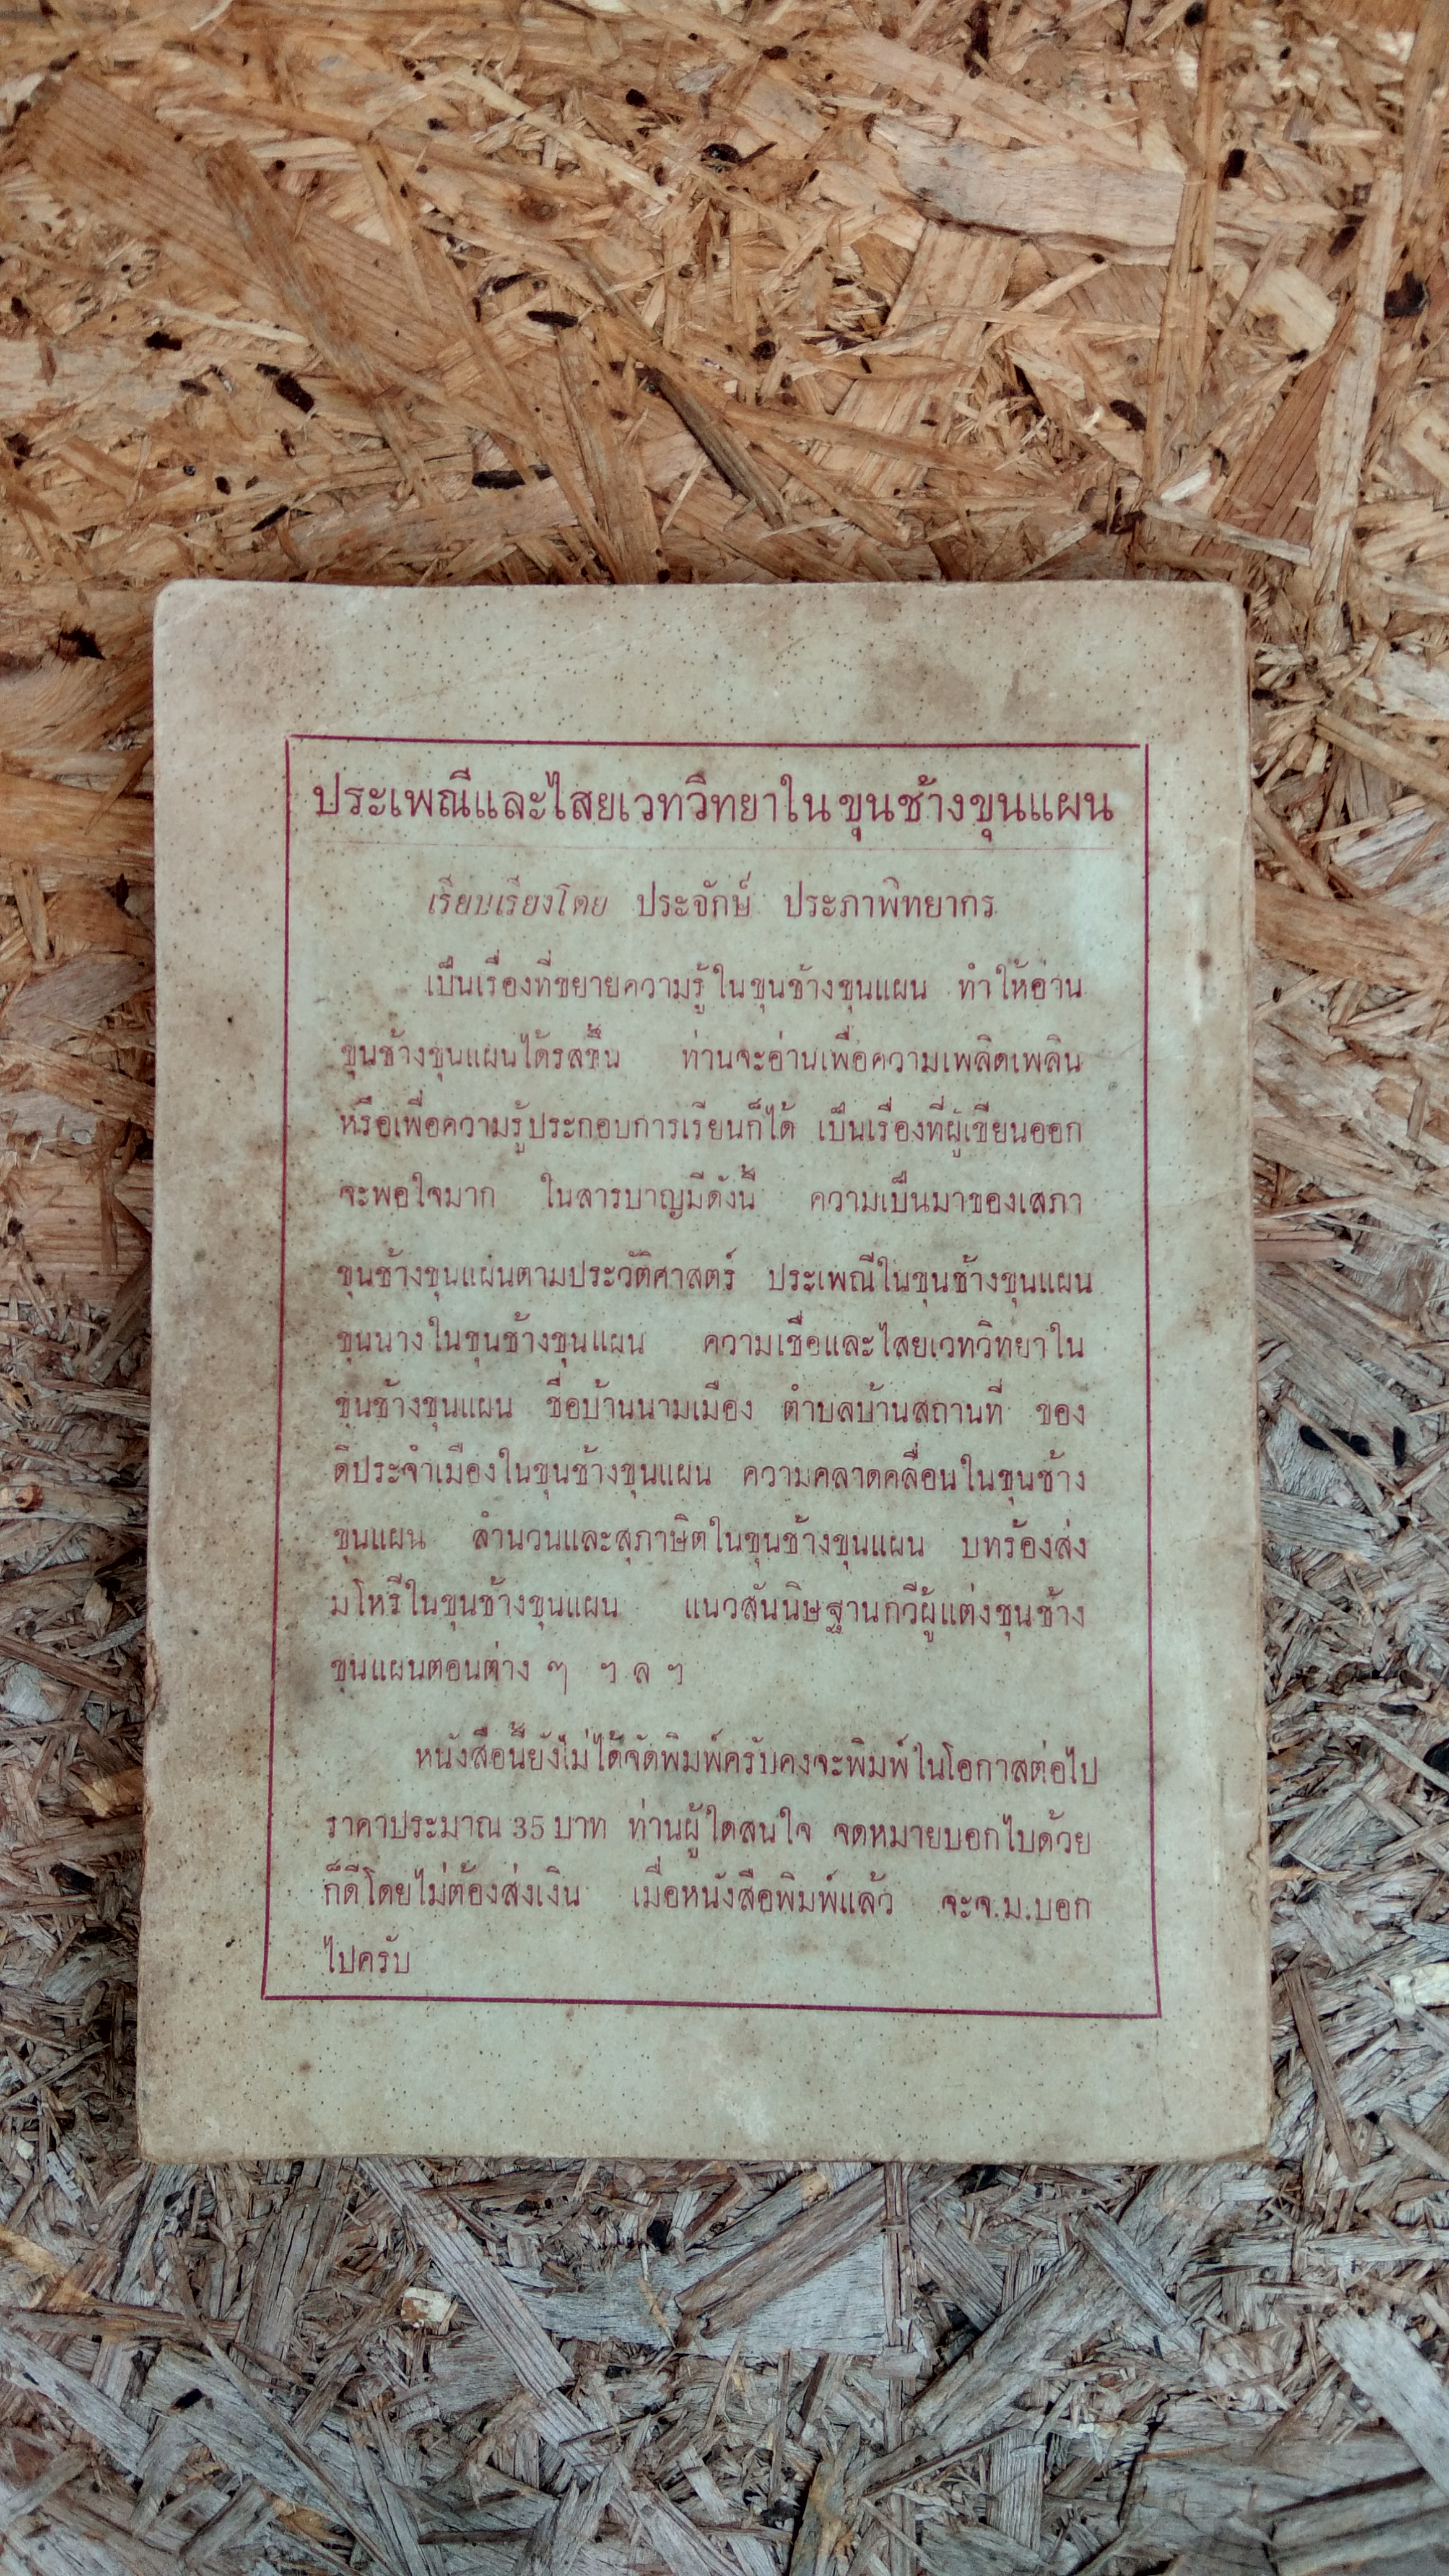 ประเพณีและไสยเวทวิทยาในขุนช้างขุนแผน
เรียบเรียงโดย ประจักษ์ ประภาพิทยากร
เป็นเรื่องที่ขยายความรู้ในขุนช้างขุนแผน ทำให้อ่าน
ขุนช้างขุนแผนได้รสขึ้น ท่านจะอ่านเพื่อความเพลิดเพลิน
หรือเพื่อความรู้ประกอบการเรียนก็ได้ เป็นเรื่องที่ผู้เขียนออก
จะพอใจมาก ในสารบาญมีดังนี้ ความเป็นมาของเสภา
ขุนช้างขุนแผนตามประวัติศาสตร์ ประเพณีในขุนช้างขุนแผน
ขุนนางในขุนช้างขุนแผน ความเชื่อและไสยเวทวิทยาใน
ขุนช้างขุนแผน ชื่อบ้านนามเมือง ตำบลบ้านสถานที่ ของ
ดีประจำเมืองในขุนช้างขุนแผน ความคลาดคลื่อนในขุนช้าง
ขุนแผน สำนวนและสุภาษิตในขุนช้างขุนแผน บทร้องส่ง
มโหรีในขุนช้างขุนแผน แนวสันนิษฐานกวีผู้แต่งขุนช้าง
ขุนแผนตอนต่าง ๆ ฯ ล ฯ
หนังสือนี้ยังไม่ได้จัดพิมพ์ครับคงจะพิมพ์ในโอกาสต่อไป
ราคาประมาณ 35 บาท ท่านผู้ใดสนใจ จดหมายบอกไปด้วย
ก็ดีโดยไม่ต้องส่งเงิน เมื่อหนังสือพิมพ์แล้ว จะจ.ม.บอก
ไปครับ